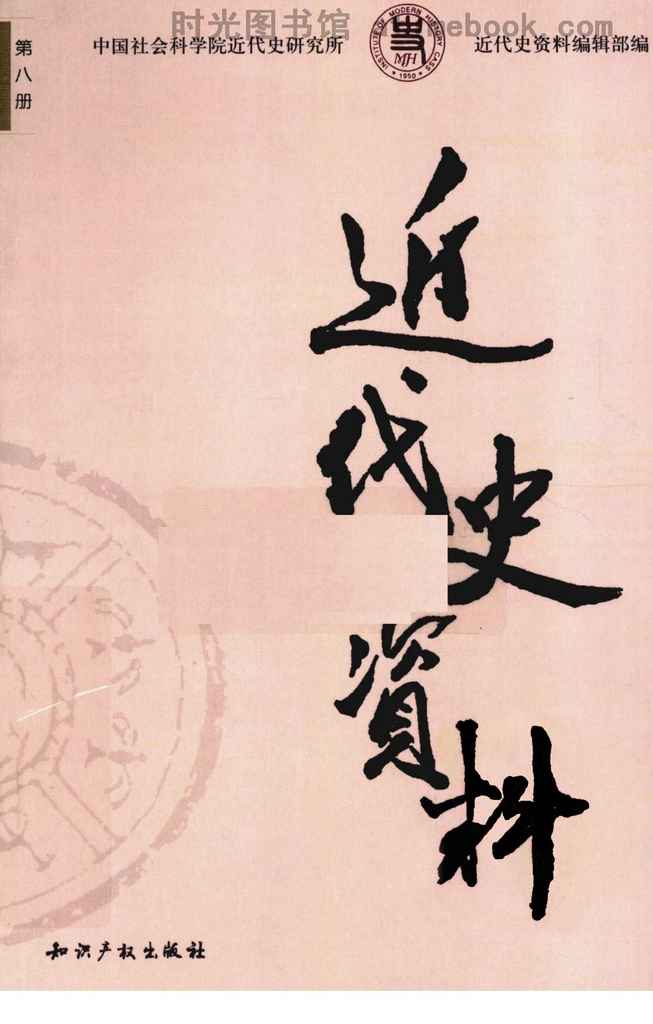 第八册
时光图书馆
中国社会科学院近代史研究所
INSTITUTE OF MODERN HISTORY CASS
MH
1950
近代史资料编辑部编
近代史資料
知识产权出版社